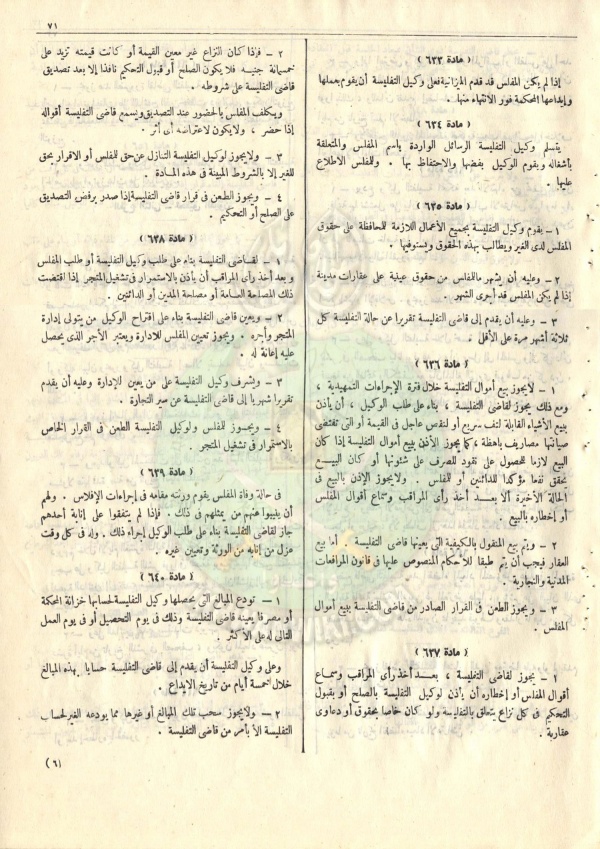 ٧١
( مادة ٦٣٣ )
إذا لم يكن المفلس قد قدم الميزانية فعلى وكيل التفليسة أن يقوم بعملها
وإيداعها المحكمة فور الانتهاء منها .
( مادة ٦٣٤ )
يتسلم وكيل التفليسة الرسائل الواردة باسم المفلس والمتعلقة
بأشغاله ويقوم الوكيل بفضها والاحتفاظ بها . وللمفلس الاطلاع
عليها .
( مادة ٦٣٥ )
١ – يقوم وكيل التفليسة بجميع الأعمال اللازمة للمحافظة على حقوق
المفلس لدى الغير ويطالب بهذه الحقوق ويستوفيها .
٢ – وعليه أن يشهر ماللمفلس من حقوق عينية على عقارات مدينة
إذا لم يكن المفلس قد أجرى الشهر .
٣ – وعليه أن يقدم إلى قاضى التفليسة تقريرا عن حالة التفليسة كل
ثلاثة أشهر مرة على الأقل .
( مادة ٦٣٦ )
١ – لايجوز بيع أموال التفليسة خلال فترة الإجراءات التمهيدية ،
ومع ذلك يجوز لقاضى التفليسة ، بناء على طلب الوكيل ، أن يأذن
ببيع الأشياء القابلة لتلف سريع أو لنقص عاجل فى القيمة أو التى تقتضى
صيانتها مصاريف باهظة ، كما يجوز الأذن ببيع أموال التفليسة إذا كان
البيع لازما للحصول على نقود للصرف على شئونها أو كان البيع
يحقق نفعا مؤكدا للدائنين أو للمفلس . ولايجوز الإذن بالبيع فى
الحالة الأخيرة ألا بعد أخذ رأى المراقب وسماع أقوال المفلس
أو إخطاره بالبيع .
٢ – ويتم بيع المنقول بالكيفية التى يعينها قاضى التفليسة . أما بيع
العقار فيجب أن يتم طبقا للأحكام المنصوص عليها فى قانون المرافعات
المدنية والتجارية .
٣ – ويجوز الطعن فى القرار الصادر من قاضى التفليسة ببيع أموال
المفلس .
( مادة ٦٣٧ )
١ – يجوز لقاضى التفليسة ، بعد أخذ رأى المراقب وسماع
أقوال المفلس أو إخطاره أن يأذن لوكيل التفليسة بالصلح أو بقبول
التحكيم فى كل نزاع يتعلق بالتفليسة ولو كان خاصا بحقوق أو دعاوى
عقارية .
٢ – فإذا كان النزاع غير معين القيمة أو كانت قيمته تزيد على
خمسمائة جنيه فلا يكون الصلح أو قبول التحكيم نافذا إلا بعد تصديق
قاضى التفليسة على شروطه .
ويكلف المفلس بالحضور عند التصديق ويسمع قاضى التفليسة أقواله
إذا حضر ، ولايكون لاعتراضه أى أثر .
٣ – ولايجوز لوكيل التفليسة التنازل عن حق للمفلس أو الاقرار بحق
للغير إلا بالشروط المبينة فى هذه المادة .
٤ – ويجوز الطعن فى قرار قاضى التفليسة إذا صدر برفض التصديق
على الصلح أو التحكيم .
( مادة ٦٣٨ )
١ – لقاضى التفليسة بناء على طلب وكيل التفليسة أو طلب المفلس
وبعد أخذ رأى المراقب أن يأذن بالاستمرار فى تشغيل المتجر إذا اقتضت
ذلك المصلحة العامة أو مصلحة المدين أو الدائنين .
٢ – ويعين قاضى التفليسة بناء على اقتراح الوكيل من يتولى إدارة
المتجر وأجره . ويجوز تعيين المفلس للادارة ويعتبر الأجر الذى يحصل
عليه إعانة له .
٣ – ويشرف وكيل التفليسة على من يعين للإدارة وعليه أن يقدم
تقريرا شهريا إلى قاضى التفليسة عن سير التجارة .
٤ – ويجوز للمفلس ولوكيل التفليسة الطعن فى القرار الخاص
بالاستمرار فى تشغيل المتجر .
( مادة ٦٣٩ )
فى حالة وفاة المفلس يقوم ورثته مقامه فى إجراءات الإفلاس . ولهم
أن ينيبوا عنهم من يمثلهم فى ذلك . فإذا لم يتفقوا على إنابة أحدهم
جاز لقاضى التفليسة بناء على طلب الوكيل إجراء ذلك . وله فى كل وقت
عزل من إنابه من الورثة وتعيين غيره .
( مادة ٦٤٠ )
١ – تودع المبالغ التى يحصلها وكيل التفليسة لحسابها خزانة المحكمة
أو مصرفا يعينه قاضى التفليسة وذلك فى يوم التحصيل أو فى يوم العمل
التالى له على الأكثر .
وعلى وكيل التفليسة أن يقدم إلى قاضى التفليسة حسابا بهذه المبالغ
خلال خمسة أيام من تاريخ الإيداع .
٢ – ولايجوز سحب تلك المبالغ أو غيرها مما يودعه الغير لحساب
التفليسة الا بأمر من قاضى التفليسة .
(٦)